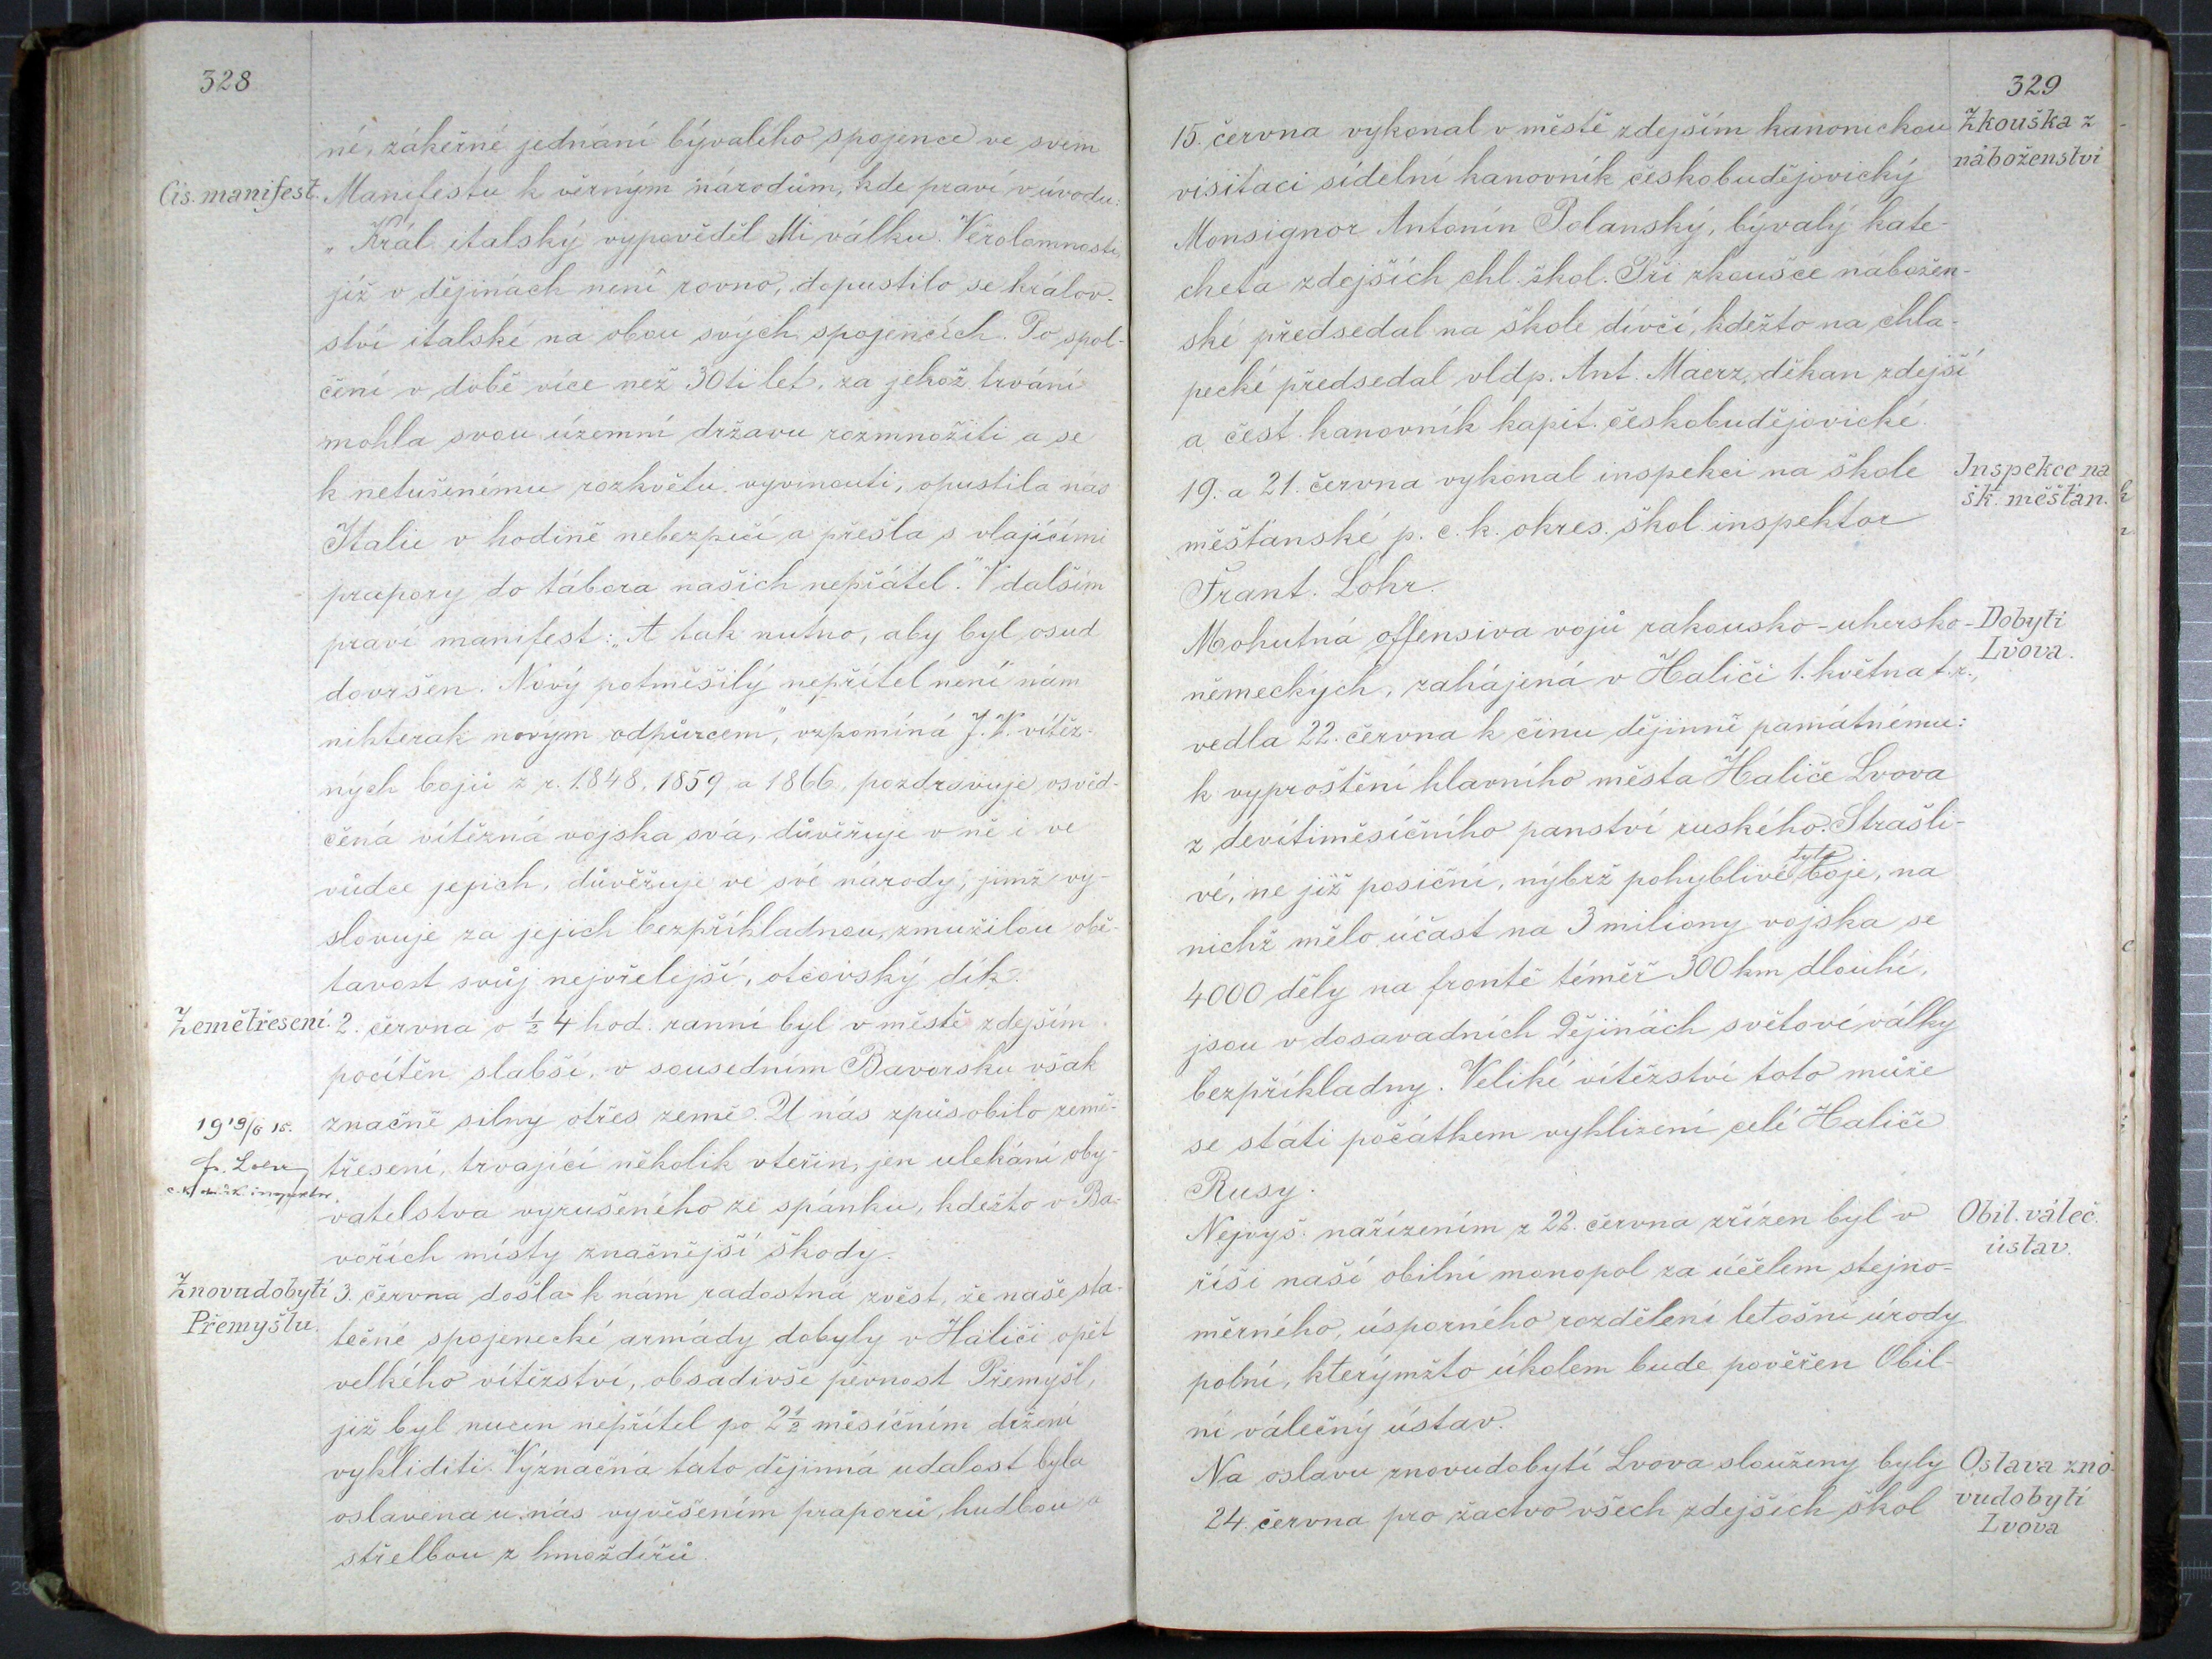 328
né, zákeřné jednání bývalého spojence ve svém
Cís. manifest. Manifestu k věrným národům, kde praví v úvodu:
„Král italský vypověděl Mi válku. Věrolomnosti,
jíž v dějinách není rovno, dopustilo se králov-
ství italské na obou svých spojencích. Po spol-
čení v době více než 30ti let, za jehož trvání
mohla svou územní državu rozmnožiti a se
k netušenému rozkvětu vyvinouti, opustila nás
Italie v hodině nebezpečí a přešla s vlajícími
prapory do tábora našich nepřátel." V dalším
praví manifest: „A tak nutno, aby byl osud
dovršen. Nový potměšilý nepřítel není nám
nikterak novým odpůrcem", vzpomíná J. V. vítěz-
ných bojů z r. 1848, 1859 a 1866, pozdravuje osvěd-
čená vítězná vojska svá, důvěřuje v ně i ve
vůdce jejich, důvěřuje ve své národy, jimž vy-
slovuje za jejich bezpříkladnou, zmužilou obě-
tavost svůj nejvřelejší, otcovský dík.
Zemětřesení. 2. června o ½ 4 hod. ranní byl v městě zdejším
pocítěn slabší, v sousedním Bavorsku však
značně silný otřes země. U nás způsobilo země-
19 19/6 15.
třesení, trvající několik vteřin, jen ulekání oby-
c. k. inspektor.
vatelstva vyrušeného ze spánku, kdežto v Ba-
vořích místy značnější škody.
Znovudobytí 3. června došla k nám radostná zvěst, že naše sta-
Přemyšlu. tečné spojenecké armády dobyly v Haliči opět
velkého vítězství, obsadivše pevnost Přemyšl,
již byl nucen nepřítel po 2½ měsíčním držení
vykliditi. Význačná tato dějinná událost byla
oslavena u nás vyvěšením praporů, hudbou a
střelbou z hmoždířů.
329
15. června vykonal v městě zdejším kanonickou Zkouška z
náboženství
visitaci sídelní kanovník českobudějovický
Monsignor Antonín Polanský, bývalý kate-
cheta zdejších chl. škol. Při zkoušce nábožen-
ské předsedal na škole dívčí, kdežto na chla-
pecké předsedal vldp. Ant. Maerz, děkan zdejší
a čest. kanovník kapit. českobudějovické.
19. a 21. června vykonal inspekci na škole Inspekce na
šk. měšťan.
měšťanské p. c. k. okres. škol. inspektor
Frant. Lohr.
Mohutná offensiva vojů rakousko-uhersko- Dobytí
Lvova.
německých, zahájená v Haliči 1. května t. r.,
vedla 22. června k činu dějinně památnému:
k vyproštění hlavního města Haliče Lvova
z devítiměsíčního panství ruského. Strašli-
vé, ne již posiční, nýbrž pohyblivé tyto boje, na
nichž mělo účast na 3 miliony vojska se
4000 děly na frontě téměř 300 km dlouhé,
jsou v dosavadních dějinách světové války
bezpříkladny. Veliké vítězství toto může
se státi počátkem vyklizení celé Haliče
Rusy.
Nejvyš. nařízením z 22. června zřízen byl v Obil. váleč.
ústav.
říši naší obilní monopol za účelem stejno-
měrného, úsporného rozdělení letošní úrody
polní, kterýmžto úkolem bude pověřen Obil-
ní válečný ústav.
Na oslavu znovudobytí Lvova slouženy byly Oslava zno-
vudobytí
24. června pro žactvo všech zdejších škol
Lvova